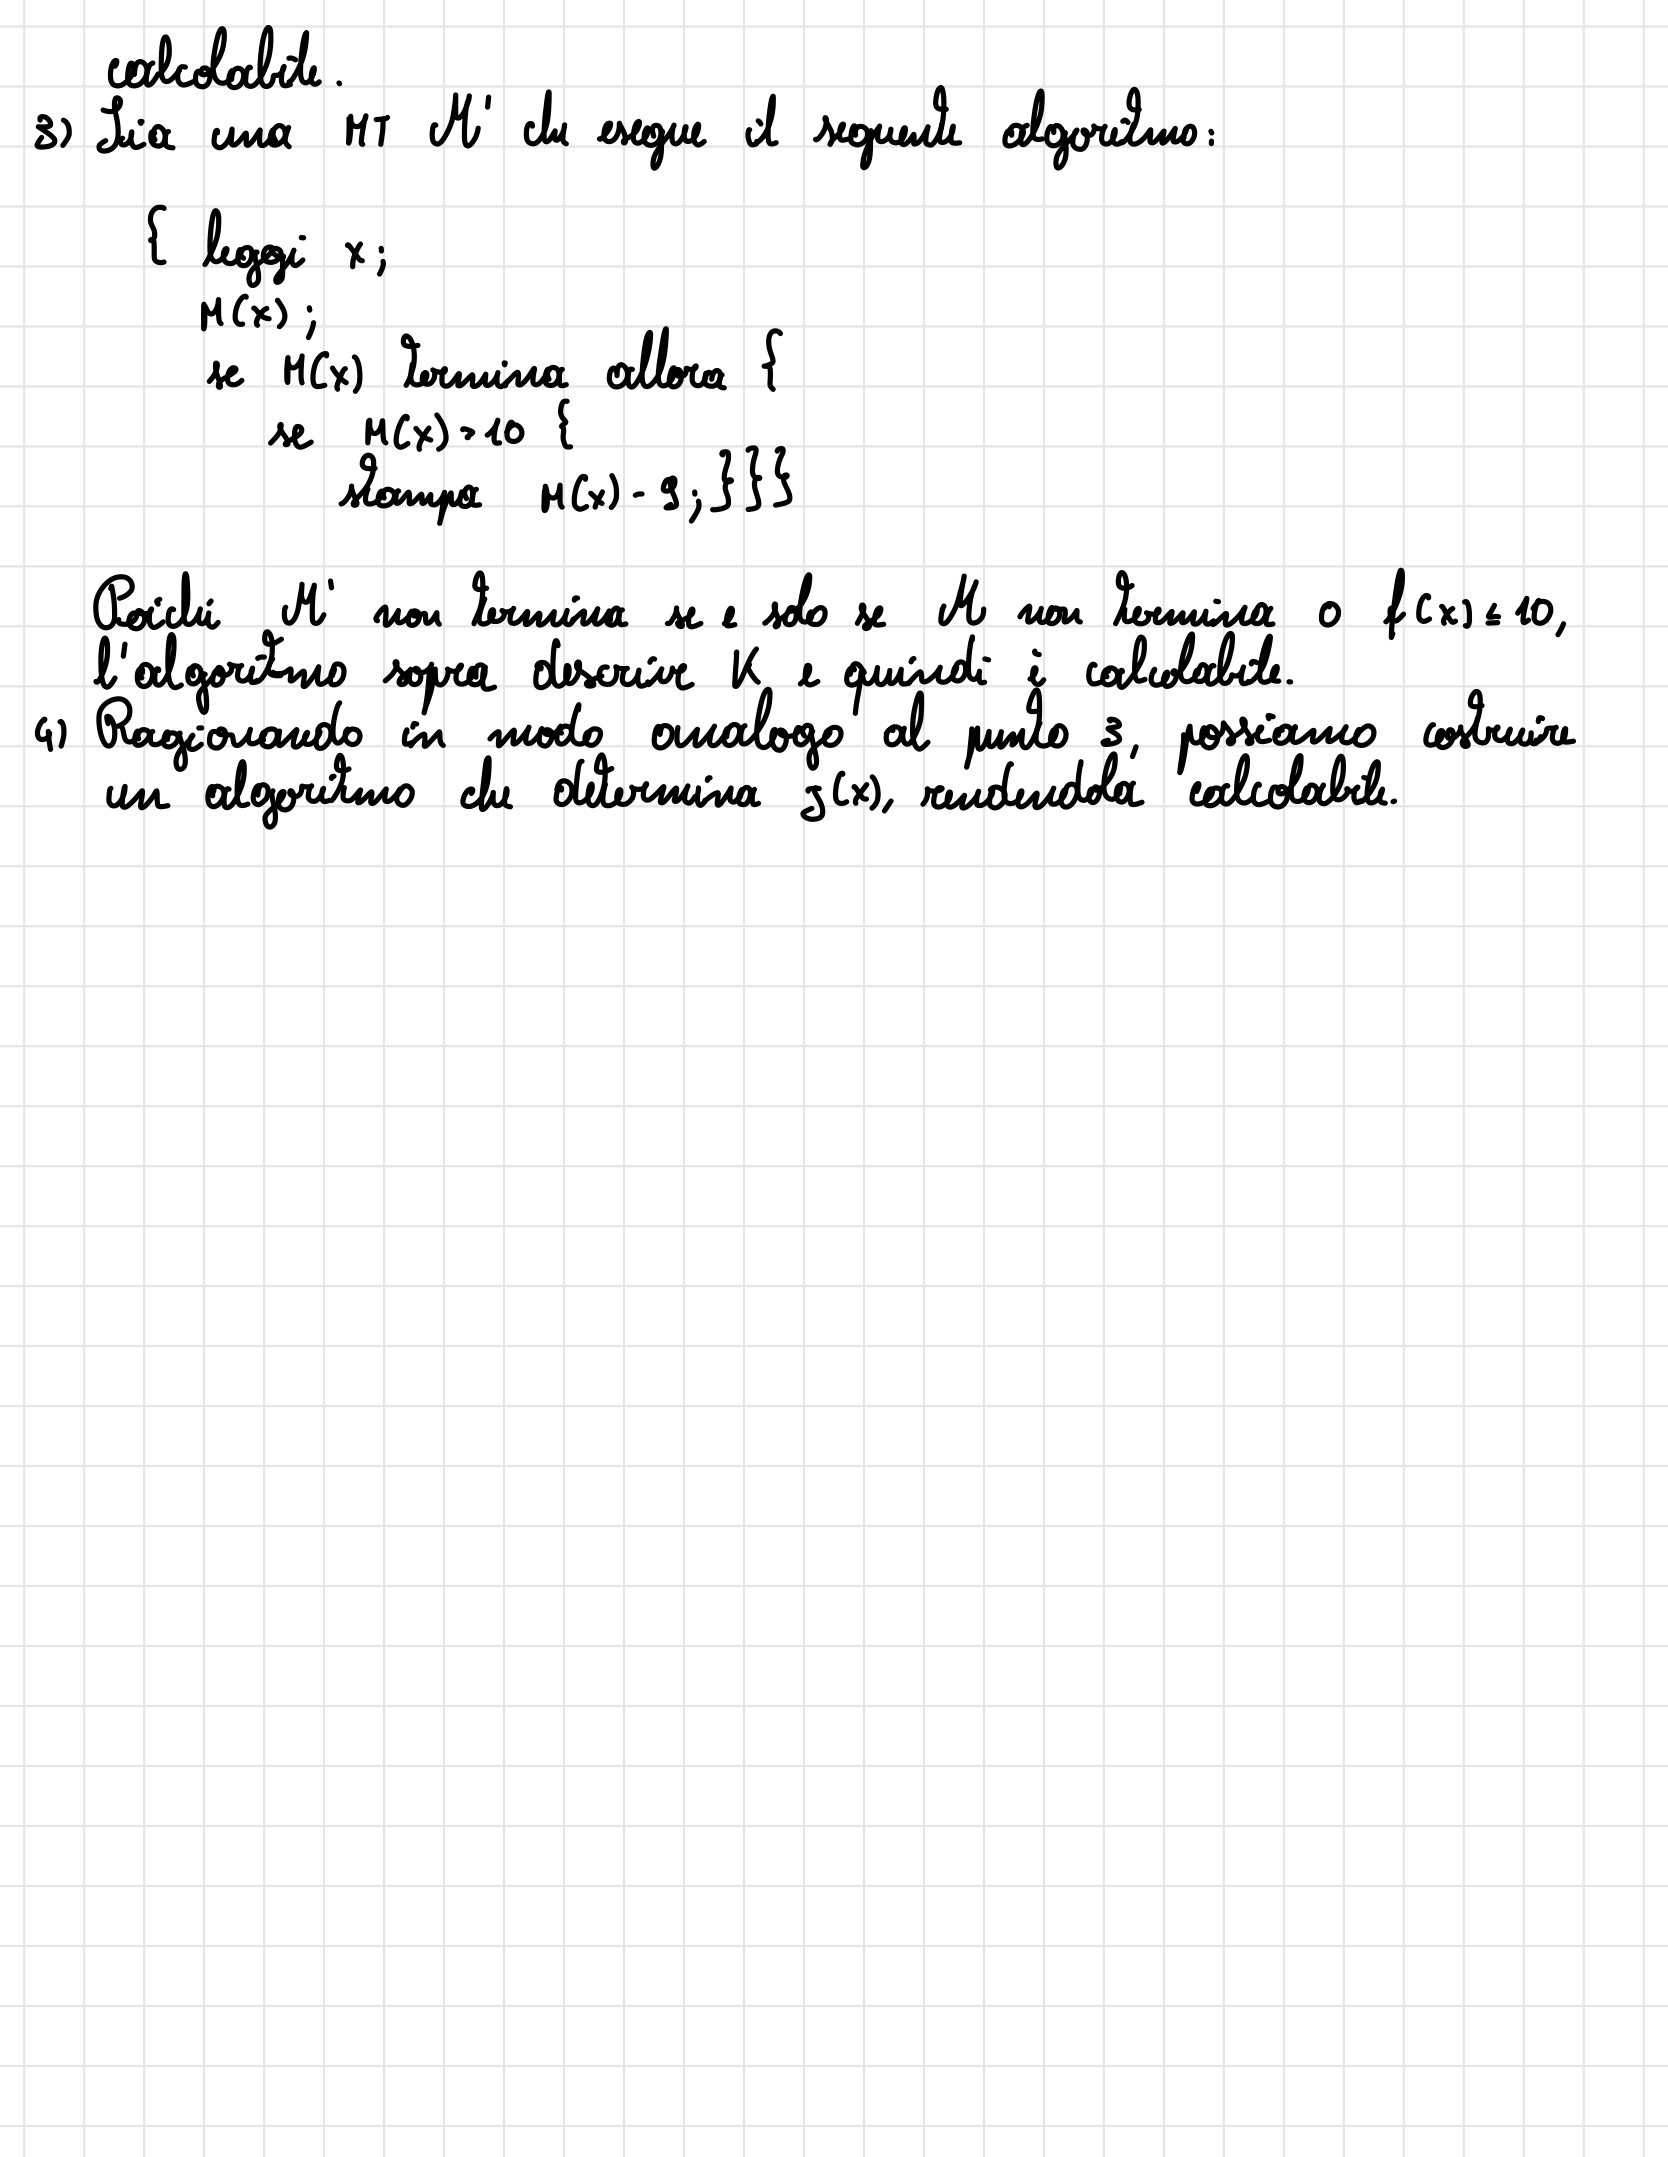 calcolabile.
3) Sia una MT M' che esegue il seguente algoritmo:
{ leggi x;
M(x);
se M(x) termina allora {
se M(x)>10 {
stampa M(x)-9;}}}
Poiché M' non termina se e solo se M non termina o f(x)≤10,
l'algoritmo sopra descrive K e quindi è calcolabile.
4) Ragionando in modo analogo al punto 3, possiamo costruire
un algoritmo che determina g(x), rendendola calcolabile.